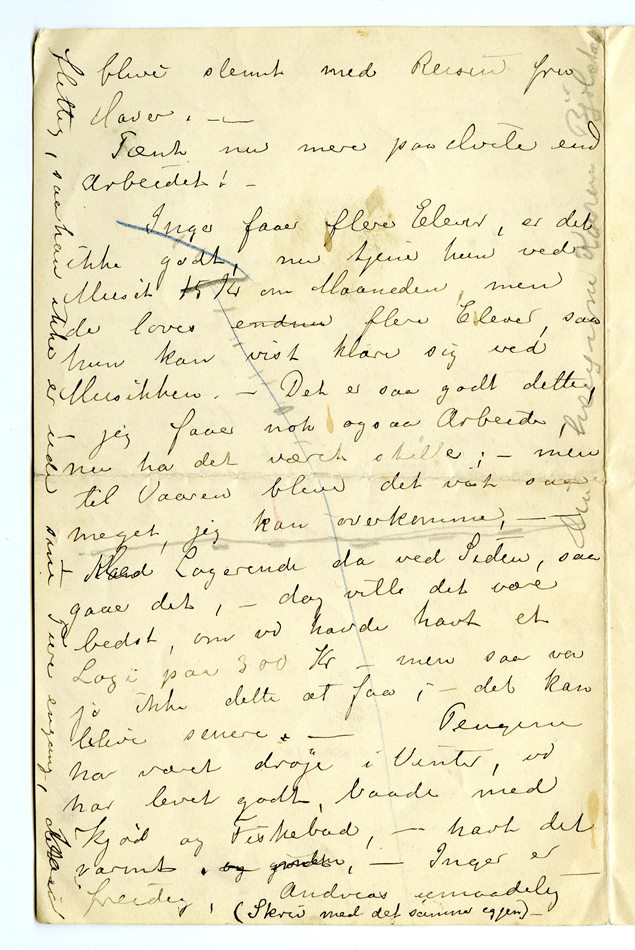 blive slemt med Reisen fra
Tænk nu mere paa Hvile end
Arbeidet! -
Inga faaer flere Elever, er det
ikke godt, nu tjene hun ved
Musik Kr om Maaneden, men
de loves endnu flere Elever, saa
hun kan vist klare sig ved
Musikken. - Det er saa godt dette,
jeg faaer nok ogsaa Arbeide,
nu ha det været stille; - men
til Vaaren bliver det vist saa
meget, jeg kan overkomme, -
Logerende da ved Siden, saa
gaae det, - dog ville det være
bedst, om vi havde havt et
Logi paa 300 Kr - men saa var
jo ikke dette at faa; - det kan
blive senere. - Pengene
har været drøje i Vinter, vi
har levet godt, baade med
Kjød og Fiskebad, - havt det
varmt, - Inger er
freidig, Andreas umaadelig
(Skriv med det samme igjen) -
flittig, saa han ikke er ude sine Ture engang,